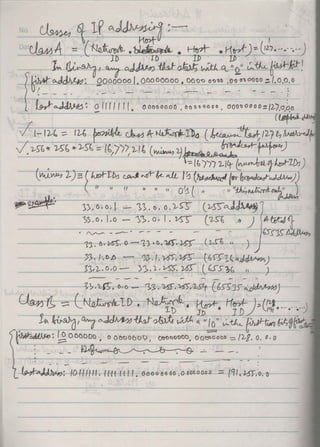 Classes of IP addressing:
Class A = (Network . Host . Host . Host) = (127. . . .)
ID ID ID ID
In Binary, any address that starts with a "0" in the first bit!
first address: 00000001.00000000.00000000.00000000 = 1.0.0.0
last address: 01111111. 00000000.00000000.00000000 = 127.0.0.0
(loopback address)
✓ 1-126 = 126 possible class A Network IDs (because last 127 is reserved for
✓ 256 * 256 * 256 = 16,777,216 (minus 2)
= 16777214 (number of host IDs)
(minus 2) = (host IDs cannot be all 1's (reserved for broadcast address)
( " " " " " 0's ( " "this network only" address)
example:
33.0.0.1 — 33.0.0.255 (255 address)
33.0.1.0 — 33.0.1.255 (256 " )
A total of
65535 Address
33.0.255.0 — 33.0.255.255 (256 " )
33.1.0.0 — 33.1.255.255 (65536 address)
33.2.0.0 — 33.2.255.255 (65536 " )
33.255.0.0 — 33.255.255.254 (65535 address)
Class B = (Network ID . Network . Host . Host) = (128
ID ID ID
In binary, any address that starts with a "10" in the first two bits of first
first address: 10000000 . 00000000, 00000000, 00000000 = 128.0.0.0
last address: 10111111. 11111111. 00000000.00000000 = 191.255.0.0